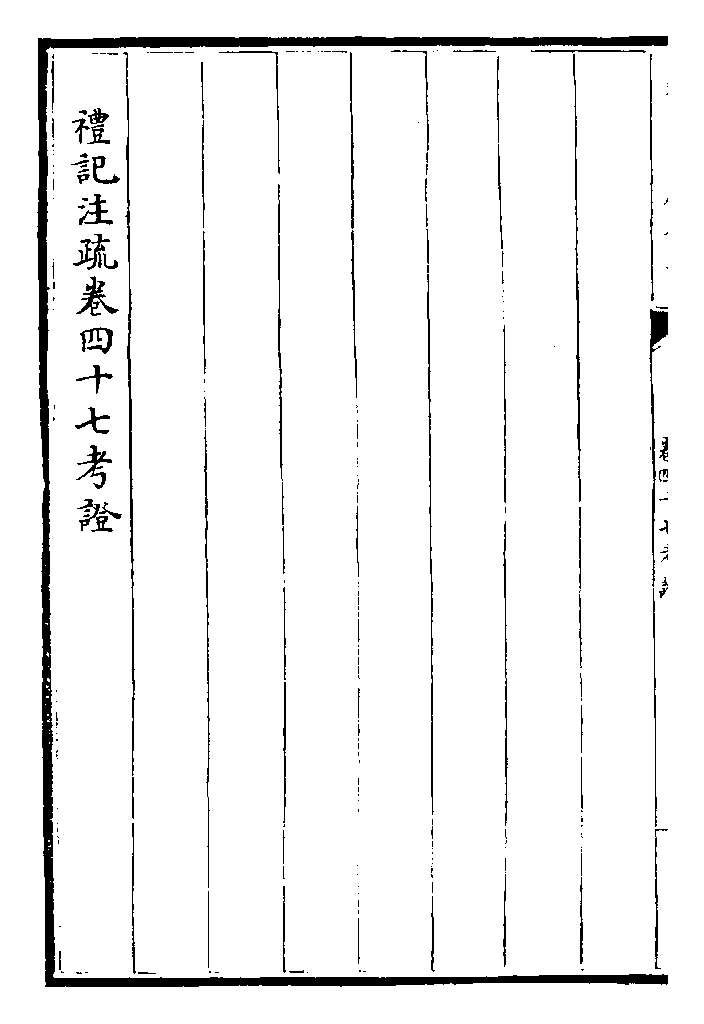 卷四十七考證
禮記注疏卷四十七考證